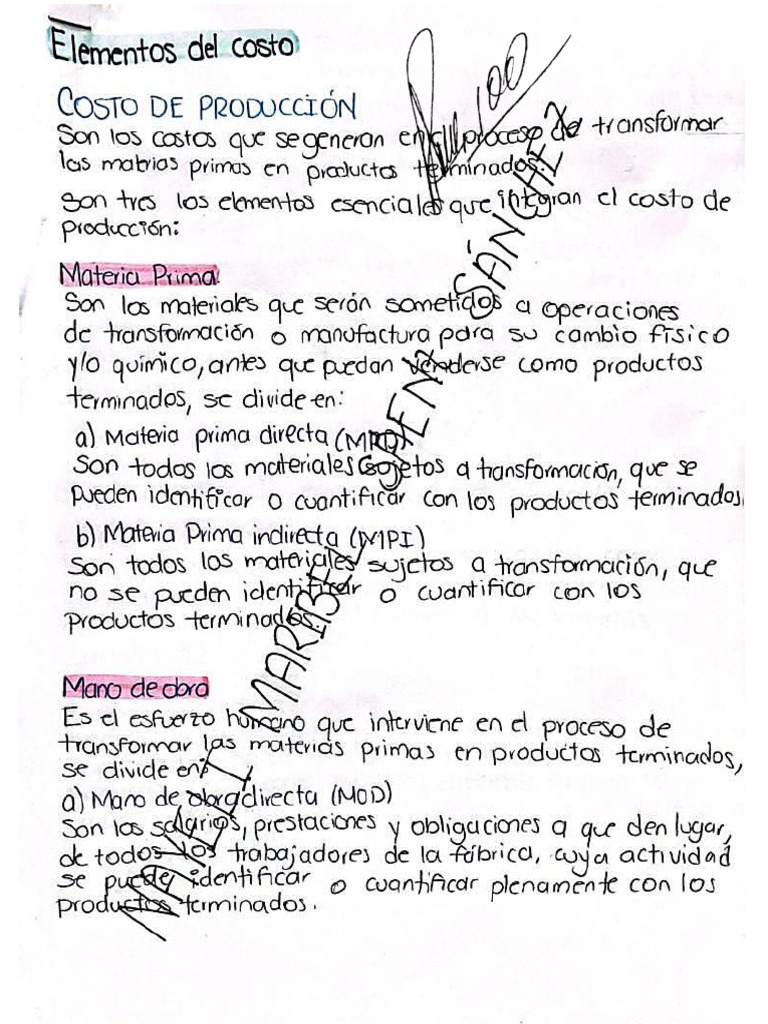 Elementos del costo
100
COSTO DE PRODUCCIÓN
Son los costos que se generan en el proceso de transformar
las matrias primas en productos terminados.
Son tres los elementos esenciales que integran el costo de
producción:
Materia Prima
Son los materiales que serán sometidos a operaciones
de transformación o manufactura para su cambio físico
y/o químico, antes que puedan venderse como productos
terminados, se divide en:
a) Materia prima directa (MPD)
Son todos los materiales sujetos a transformación, que se
pueden identificar o cuantificar con los productos terminados.
b) Materia Prima indirecta (MPI)
Son todos los materiales sujetos a transformación, que
no se pueden identificar o cuantificar con los
productos terminados.
Mano de obra
Es el esfuerzo humano que interviene en el proceso de
transformar las materias primas en productos terminados,
se divide en:
a) Mano de obra directa (MOD)
Son los salarios, prestaciones y obligaciones a que den lugar,
de todos los trabajadores de la fábrica, cuya actividad
se puede identificar o cuantificar plenamente con los
productos terminados.
MARIBEL
SÁNCHEZ